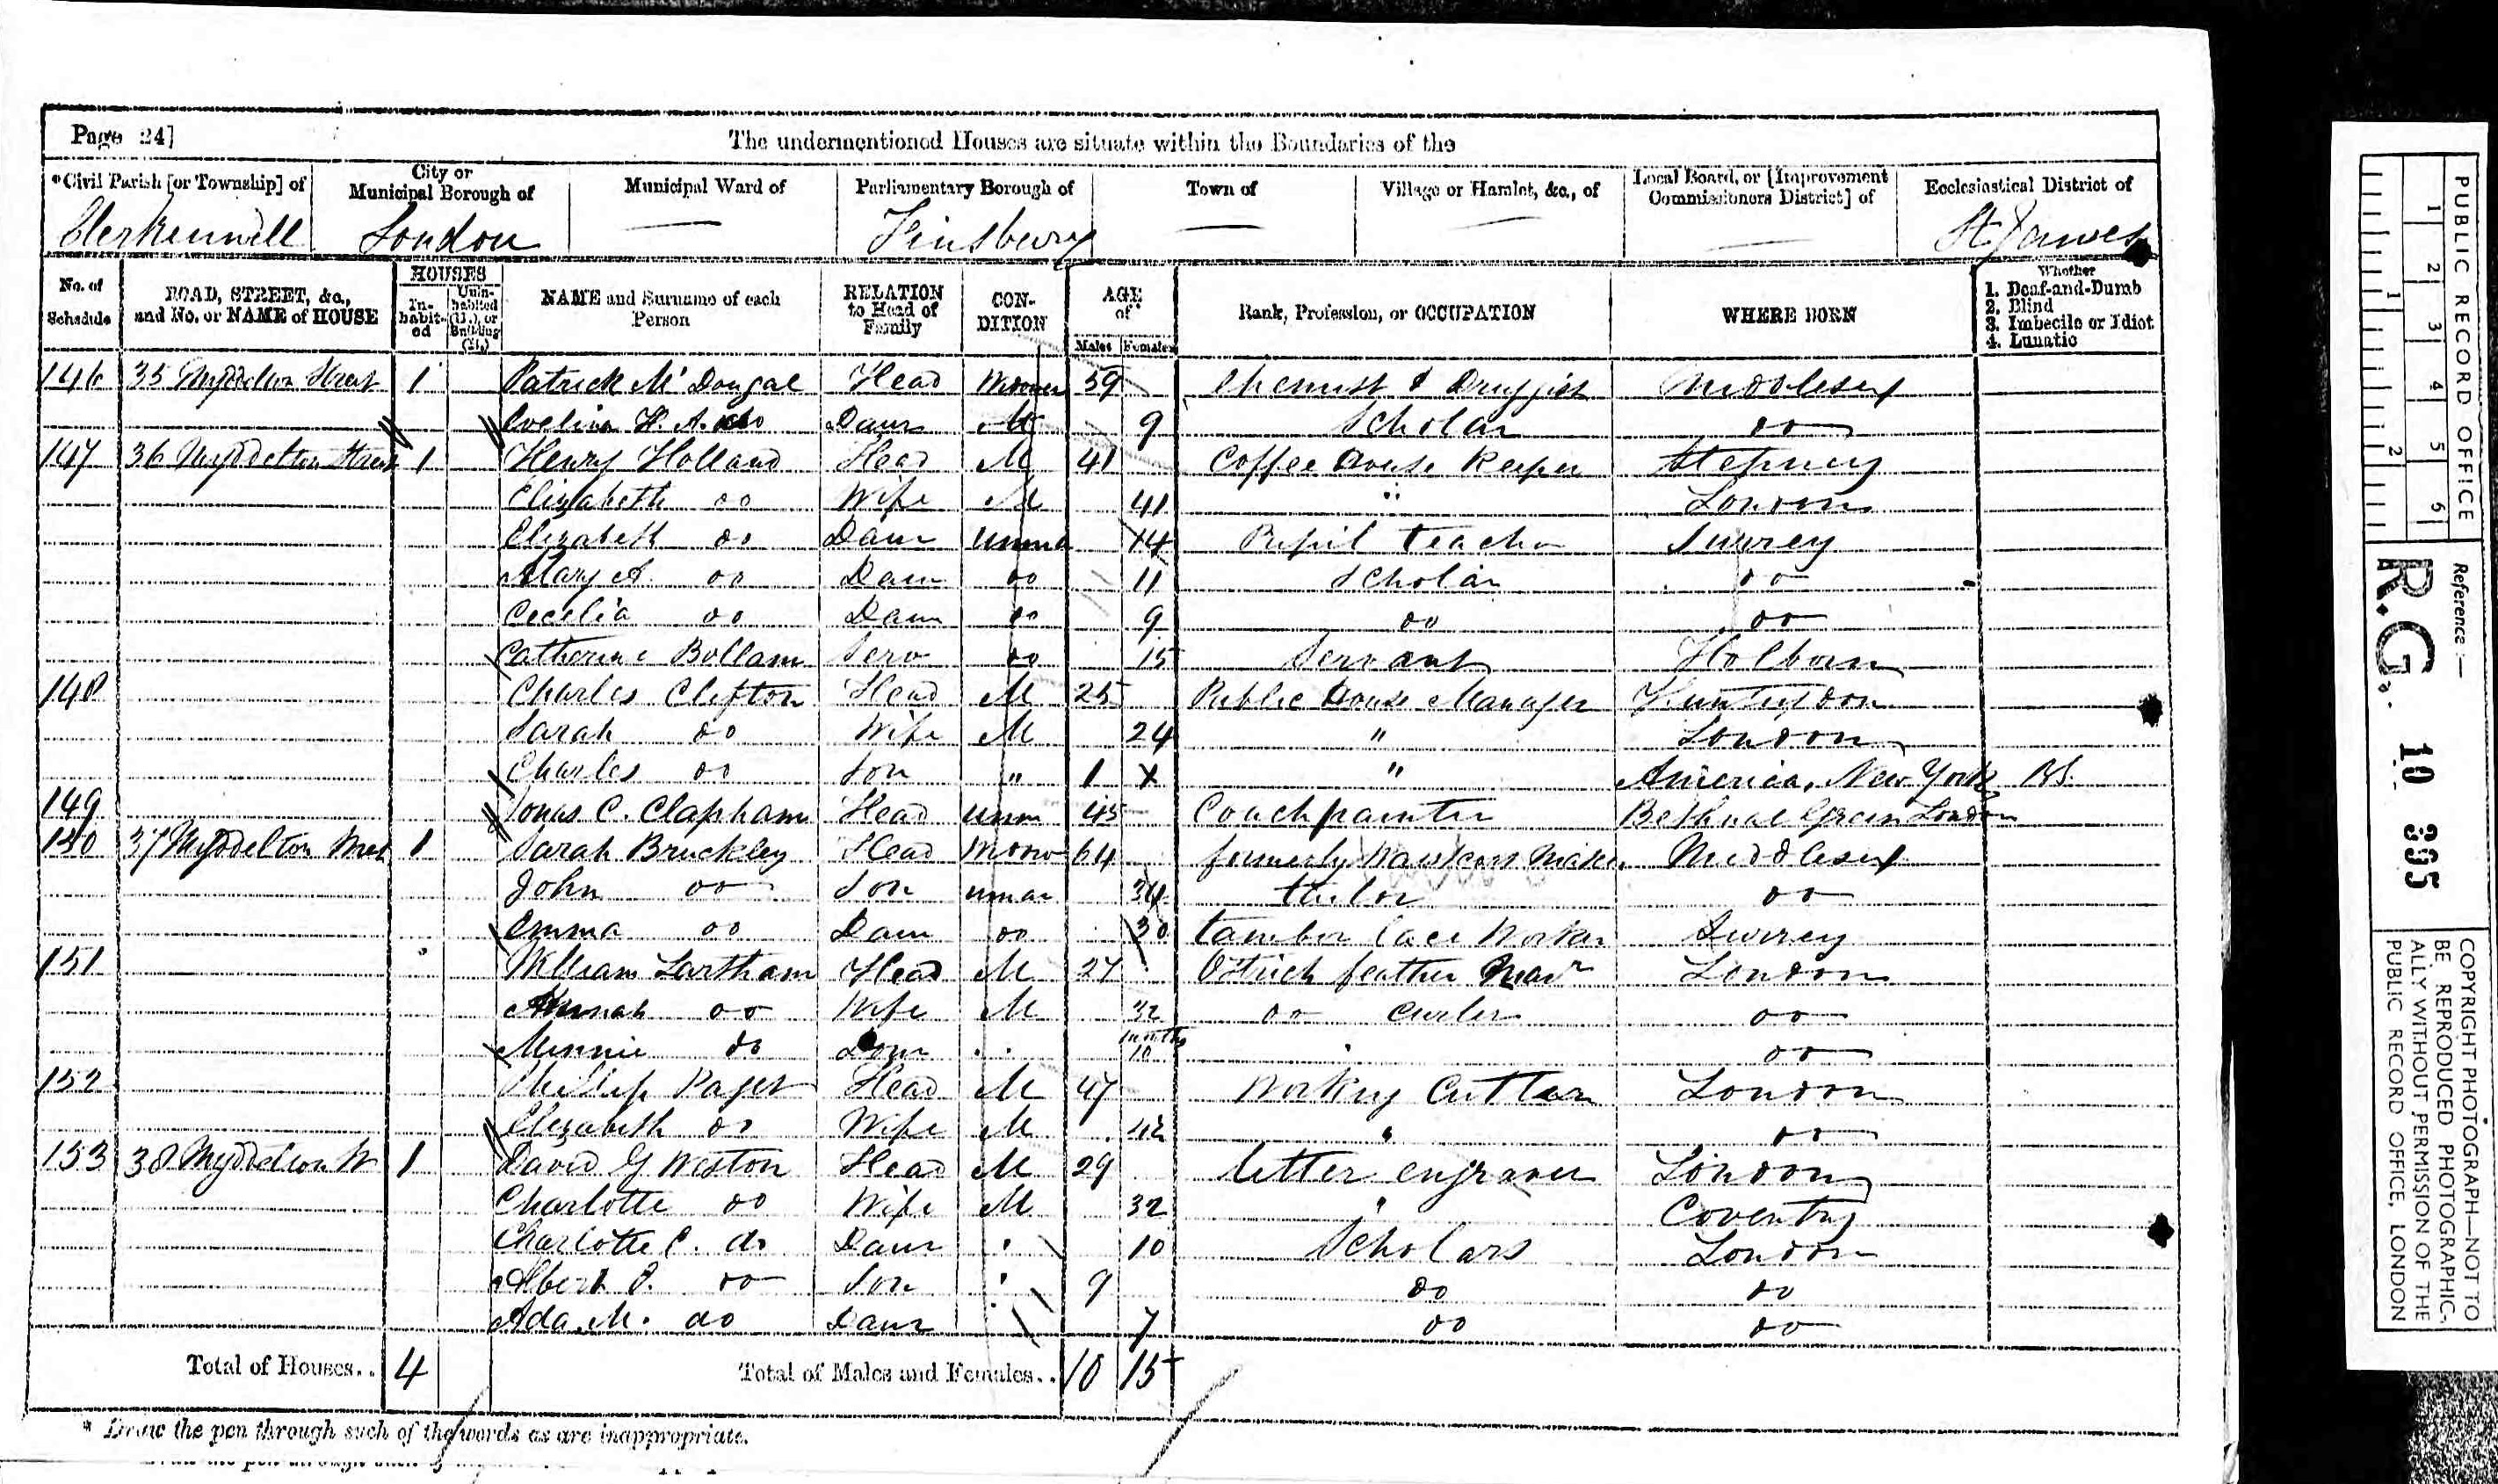 Page 24]
The undermentioned Houses are situate within the Boundaries of the
*Civil Parish [or Township] of
City or Municipal Borough of
Municipal Ward of
Parliamentary Borough of
Town of
Village or Hamlet, &c., of
Local Board, or [Improvement Commissioners District] of
Ecclesiastical District of
Clerkenwell London — Finsbury — — — St James
No. of Schedule
ROAD, STREET, &c., and No. or NAME of HOUSE
HOUSES
In-habit-ed
Unin-habited (U.), or Building (B.)
NAME and Surname of each Person
RELATION to Head of Family
CON-DITION
AGE of
Males Females
Rank, Profession, or OCCUPATION
WHERE BORN
Whether
1. Deaf-and-Dumb
2. Blind
3. Imbecile or Idiot
4. Lunatic
146 35 Myddelton Street 1 Patrick Mc Dougal Head 39 Chemist & Druggist Middlesex
Evelina H. A. do Daur 9 Scholar do
147 36 Myddelton Street 1 Henry Holland Head M 41 Coffee House Keeper Stepney
Elizabeth do Wife M 41 " London
Elizabeth do Daur Unma 14 Pupil teacher Surrey
Mary A. do Daur do 11 Scholar do
Cecelia do Daur do 9 do do
Catherine Bollam Serv do 15 Servant Holborn
148 Charles Clifton Head M 25 Public House Manager Huntingdon
Sarah do Wife M 24 " London
Charles do Son " 1 " America, New York BS.
149 Jonas C. Clapham Head Unm 45 Coach painter Bethnal Green London
150 37 Myddelton Street 1 Sarah Bruckley Head Widow 64 formerly Maker Middlesex
John do Son unmar 34 tailor do
Emma do Daur do 30 tambor lace Worker Surrey
151 William Lartham Head M 27 Ostrich feather Manr London
Hannah do Wife M 32 do Curler do
Minnie do Daur months 10 do
152 Phillip Paget Head M 47 Working Cutler London
Elizabeth do Wife M 42 " do
153 38 Myddelton St 1 David G Weston Head M 29 letter engraver London
Charlotte do Wife M 32 " Coventry
Charlotte C. do Daur " 10 Scholars London
Albert P. do Son " 9 do do
Ada M. do Daur 7 do do
Total of Houses.. 4 Total of Males and Females.. 10 15
* Draw the pen through such of the words as are inappropriate.
PUBLIC RECORD OFFICE
1 2 3 4 5 6
1 2
Reference:—
R.G. 10 395
COPYRIGHT PHOTOGRAPH—NOT TO
BE REPRODUCED PHOTOGRAPHIC-
ALLY WITHOUT PERMISSION OF THE
PUBLIC RECORD OFFICE, LONDON